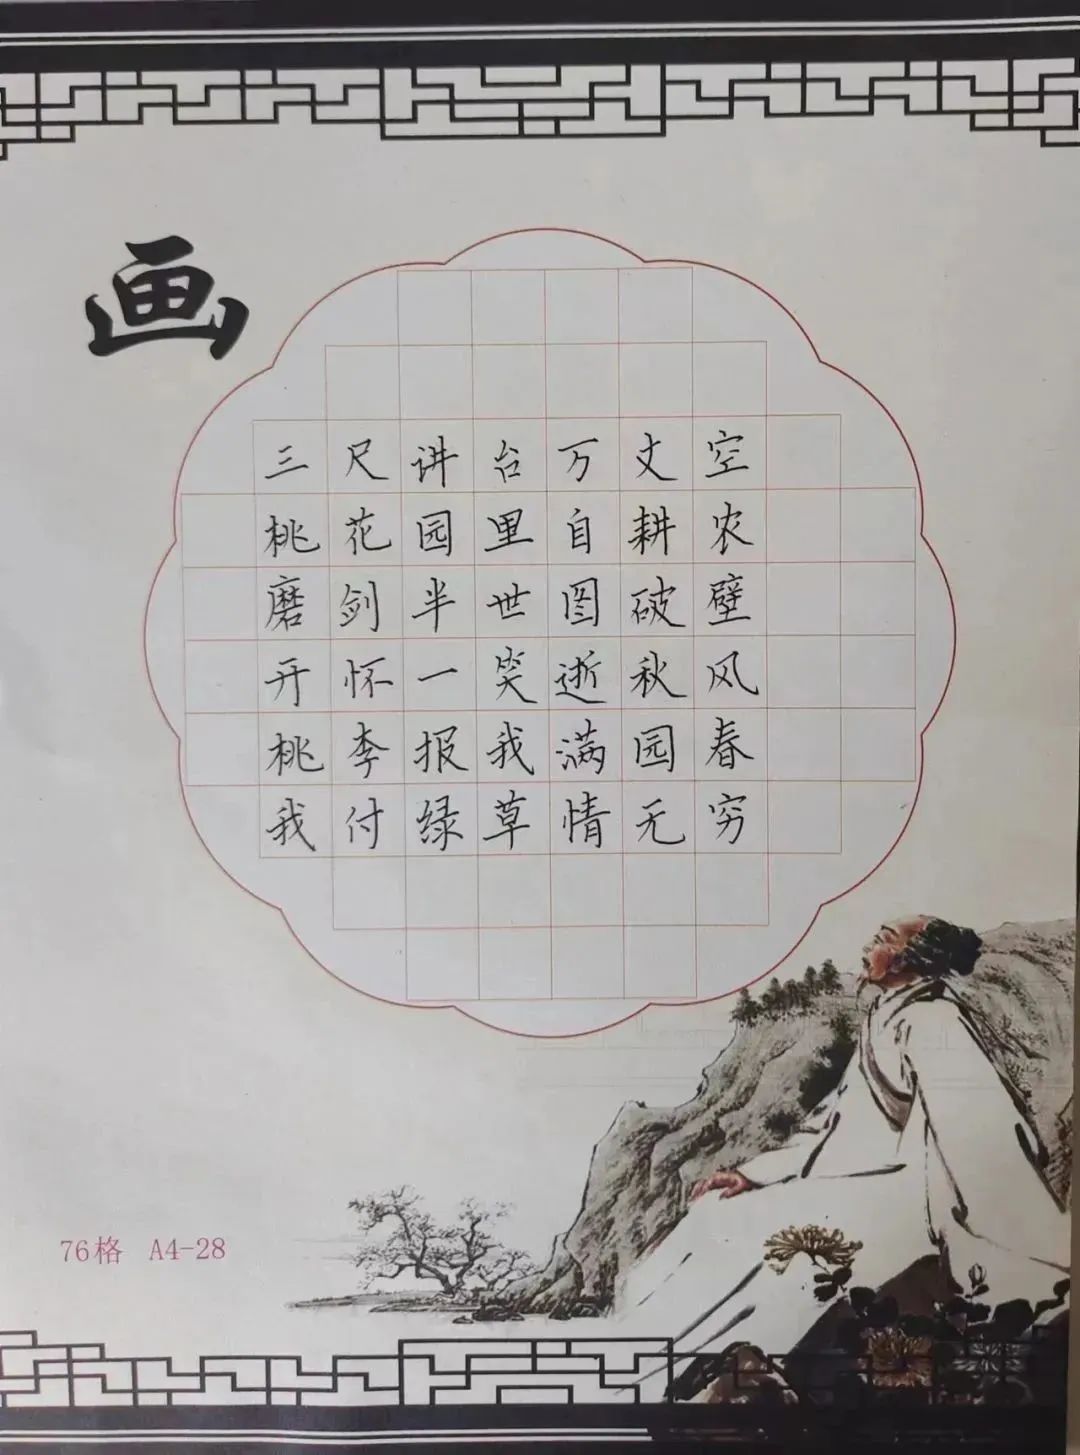 画
三尺讲台万丈空
桃花园里自耕农
磨剑半世图破壁
开怀一笑逝秋风
桃李报我满园春
我付绿草情无穷
76格 A4-28